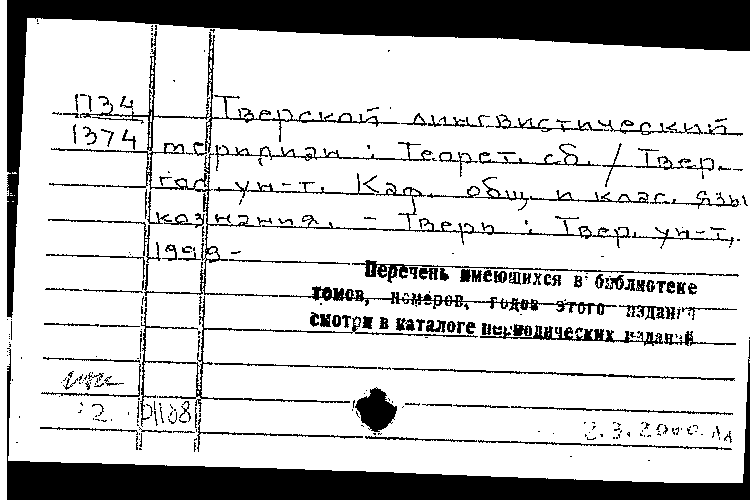 П34 Тверской лингвистический
1374 меридиан : Теорет. сб. / Твер.
гос. ун-т. Каф. общ. и клас. язы
кознания. - Тверь : Твер. ун-т,
1999-
Перечень имеющихся в библиотеке
томов, номеров, годов этого издания
смотри в каталоге периодических изданий
2.3.2000